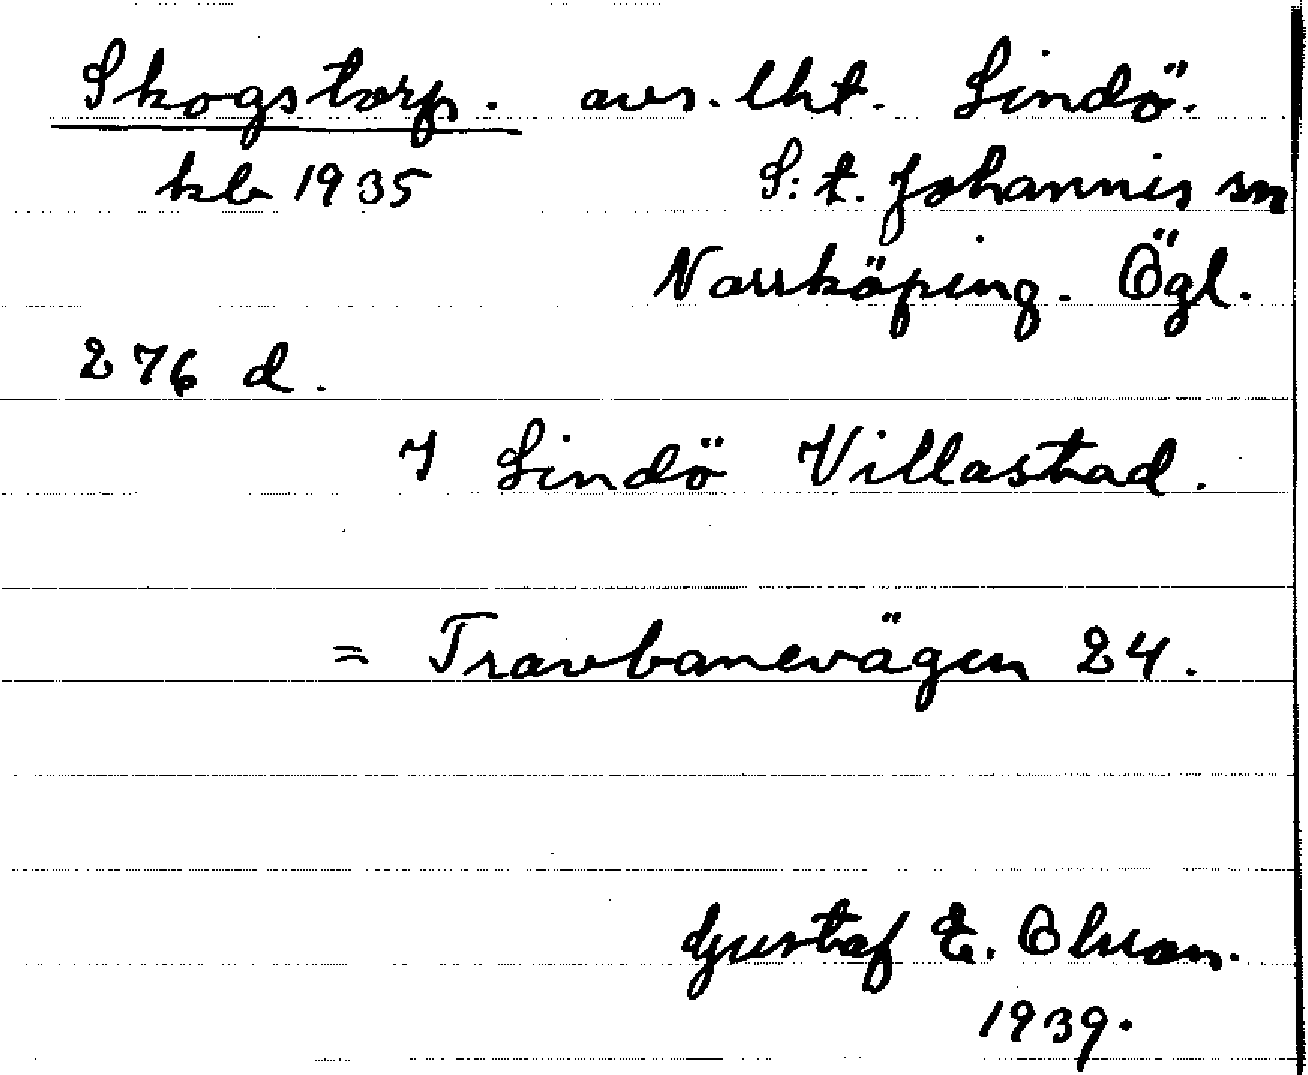 Skogstorp. avs. lht. Lindö.
kb 1935 S:t. Johannis sn
Norrköping. Ögl.
276 d.
I Lindö Villastad.
= Travbanevägen 24.
Gustaf E. Olsson.
1939.